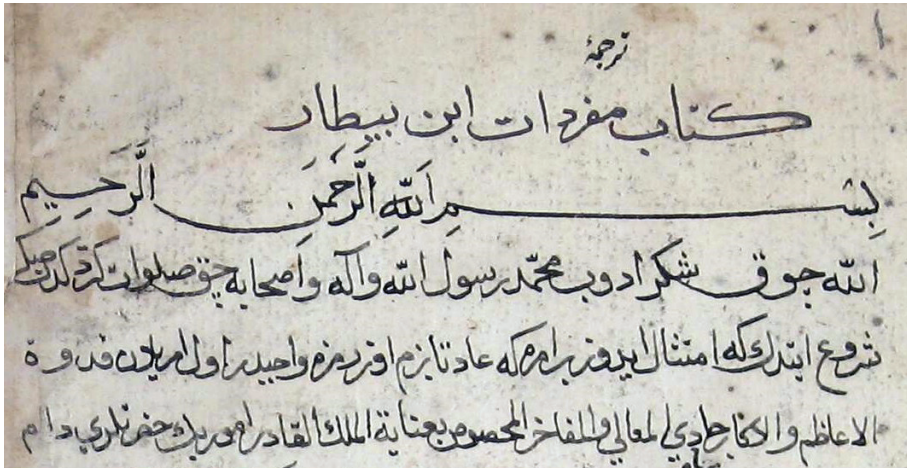 ١
ترجمهٔ
كتاب مفردات ابن بيطار
بِسْمِ اللّٰهِ الرَّحْمٰنِ الرَّحِيمِ
الله چوق شكر ادوب محمّد رسول الله وآله واصحابه چق صلوات كتوردكدنصكره
شروع ايتدك كه امتثال ايدوز بر امره كه عادتا بزم اوزرمزه واجبدر اول امر بدن قدوة
الاعاظم والاكابر حاوي المعالي والمفاخر المخصوص بعناية الملك القادر امور بك حضرتلري دام